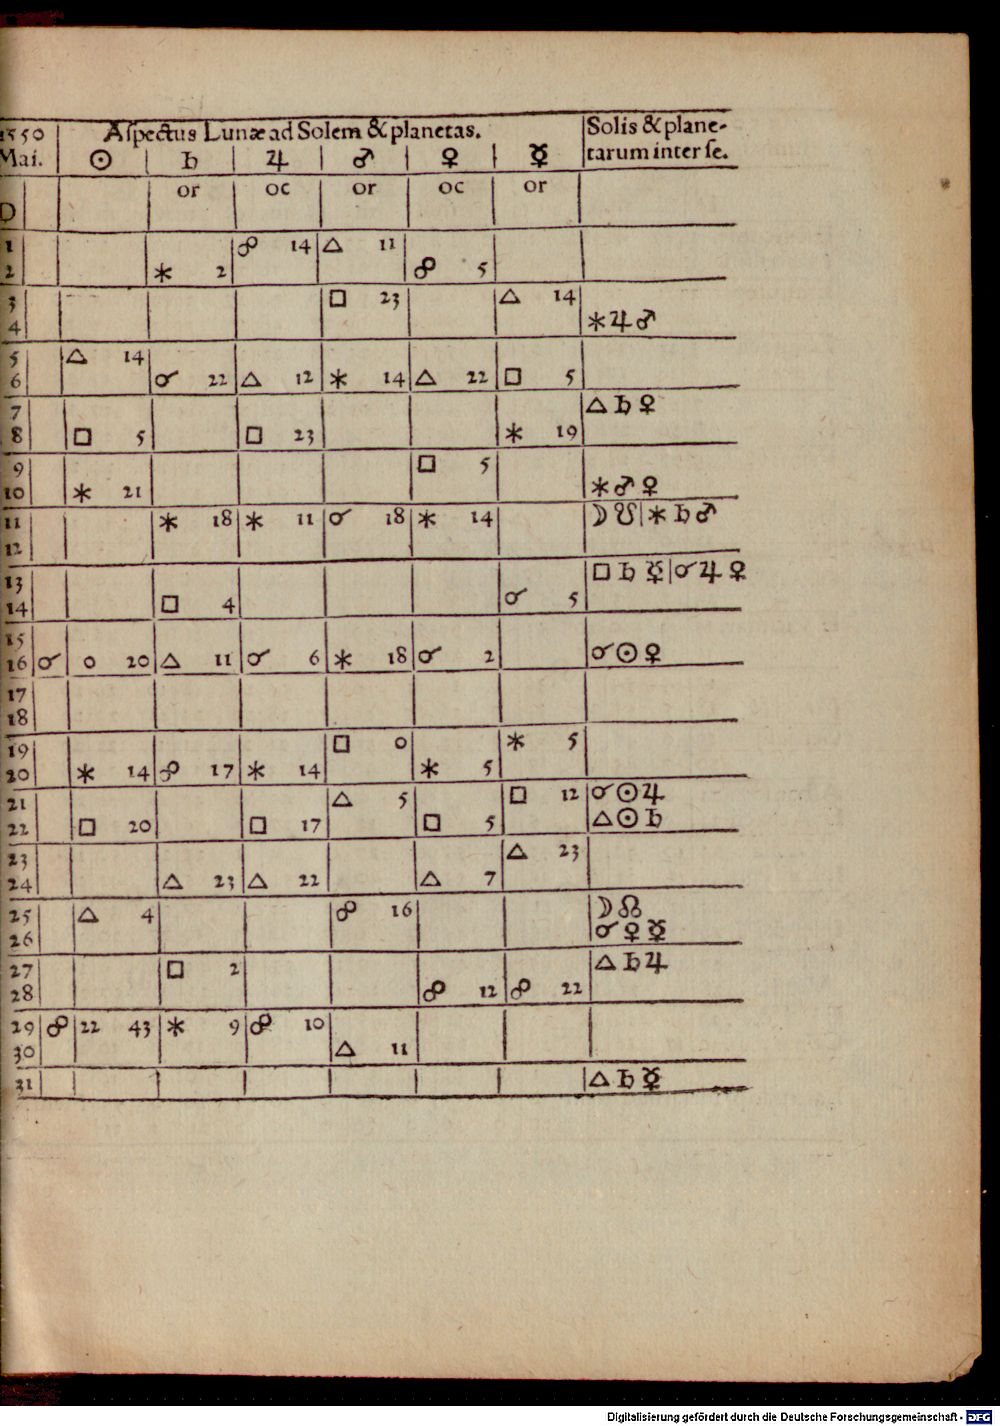 1550 Aſpectus Lunæ ad Solem & planetas. Solis & plane-
Mai. ☉ ♄ ♃ ♂ ♀ ☿ tarum inter ſe.
or oc or oc or
D
1 ☍ 14 △ 11
2 ✶ 2 ☍ 5
3 □ 23 △ 14
4 ✶ ♃ ♂
5 △ 14
6 ☌ 22 △ 12 ✶ 14 △ 22 □ 5
7 △ ♄ ♀
8 □ 5 □ 23 ✶ 19
9 □ 5
10 ✶ 21 ✶ ♂ ♀
11 ✶ 18 ✶ 11 ☌ 18 ✶ 14 ☽ ☋ | ✶ ♄ ♂
12
13 □ ♄ ☿ | ☌ ♃ ♀
14 □ 4 ☌ 5
15
16 ☌ 0 20 △ 11 ☌ 6 ✶ 18 ☌ 2 ☌ ☉ ♀
17
18
19 □ 0 ✶ 5
20 ✶ 14 ☍ 17 ✶ 14 ✶ 5
21 △ 5 □ 12 ☌ ☉ ♃
22 □ 20 □ 17 □ 5 △ ☉ ♄
23 △ 23
24 △ 23 △ 22 △ 7
25 △ 4 ☍ 16 ☽ ☊
26 ☌ ♀ ☿
27 □ 2 △ ♄ ♃
28 ☍ 12 ☍ 22
29 ☍ 22 43 ✶ 9 ☍ 10
30 △ 11
31 △ ♄ ☿
Digitalisierung gefördert durch die Deutsche Forschungsgemeinschaft - DFG